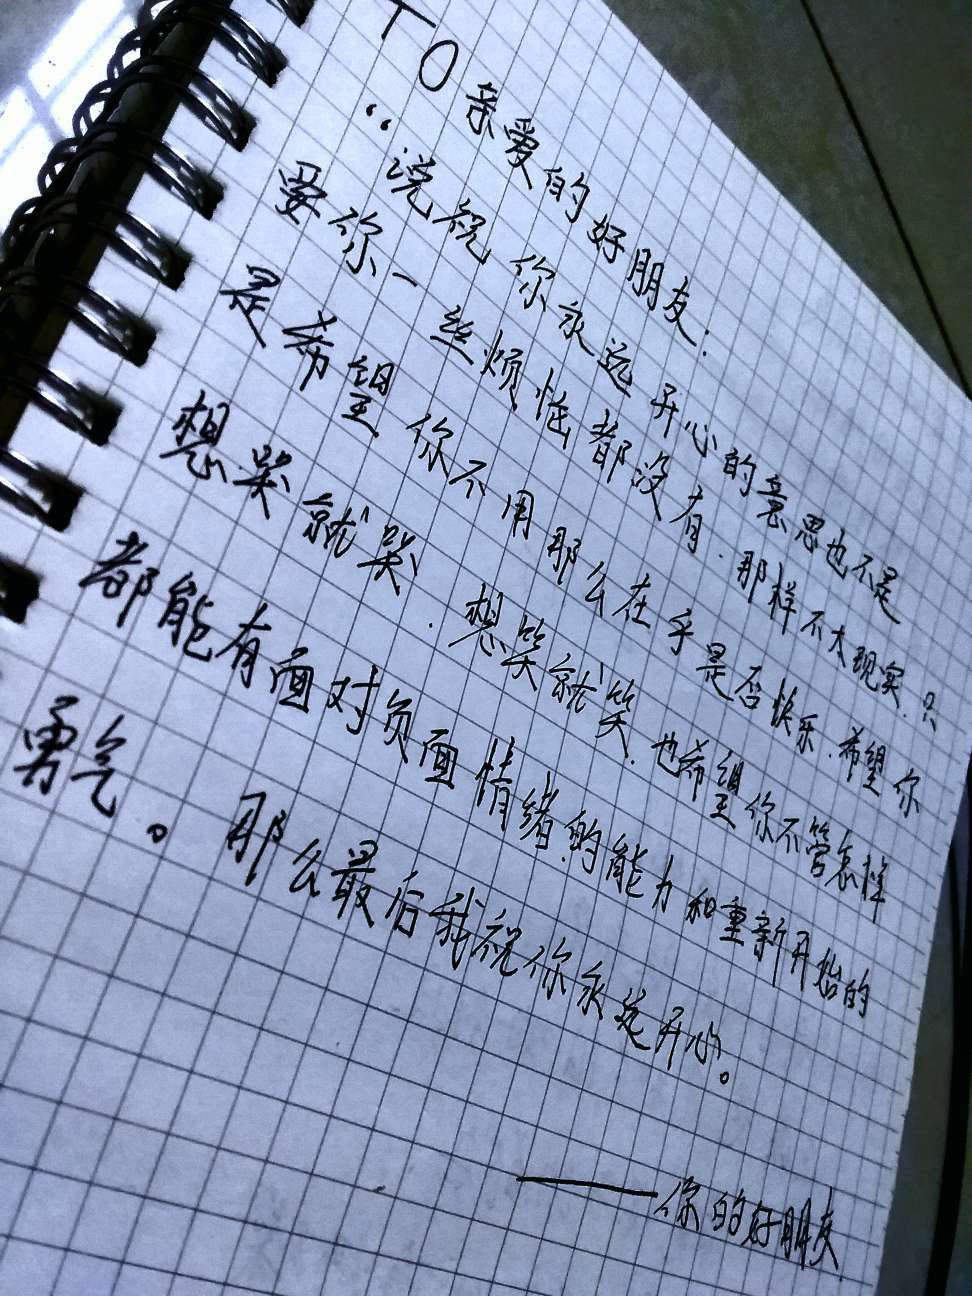 TO亲爱的好朋友:
“说祝你永远开心的意思也不是
要你一丝烦恼都没有.那样不太现实.只
是希望你不用那么在乎是否快乐.希望你
想哭就哭.想笑就笑.也希望你不管怎样
都能有面对负面情绪的能力和重新开始的
勇气。那么最后我祝你永远开心。
——你的好朋友